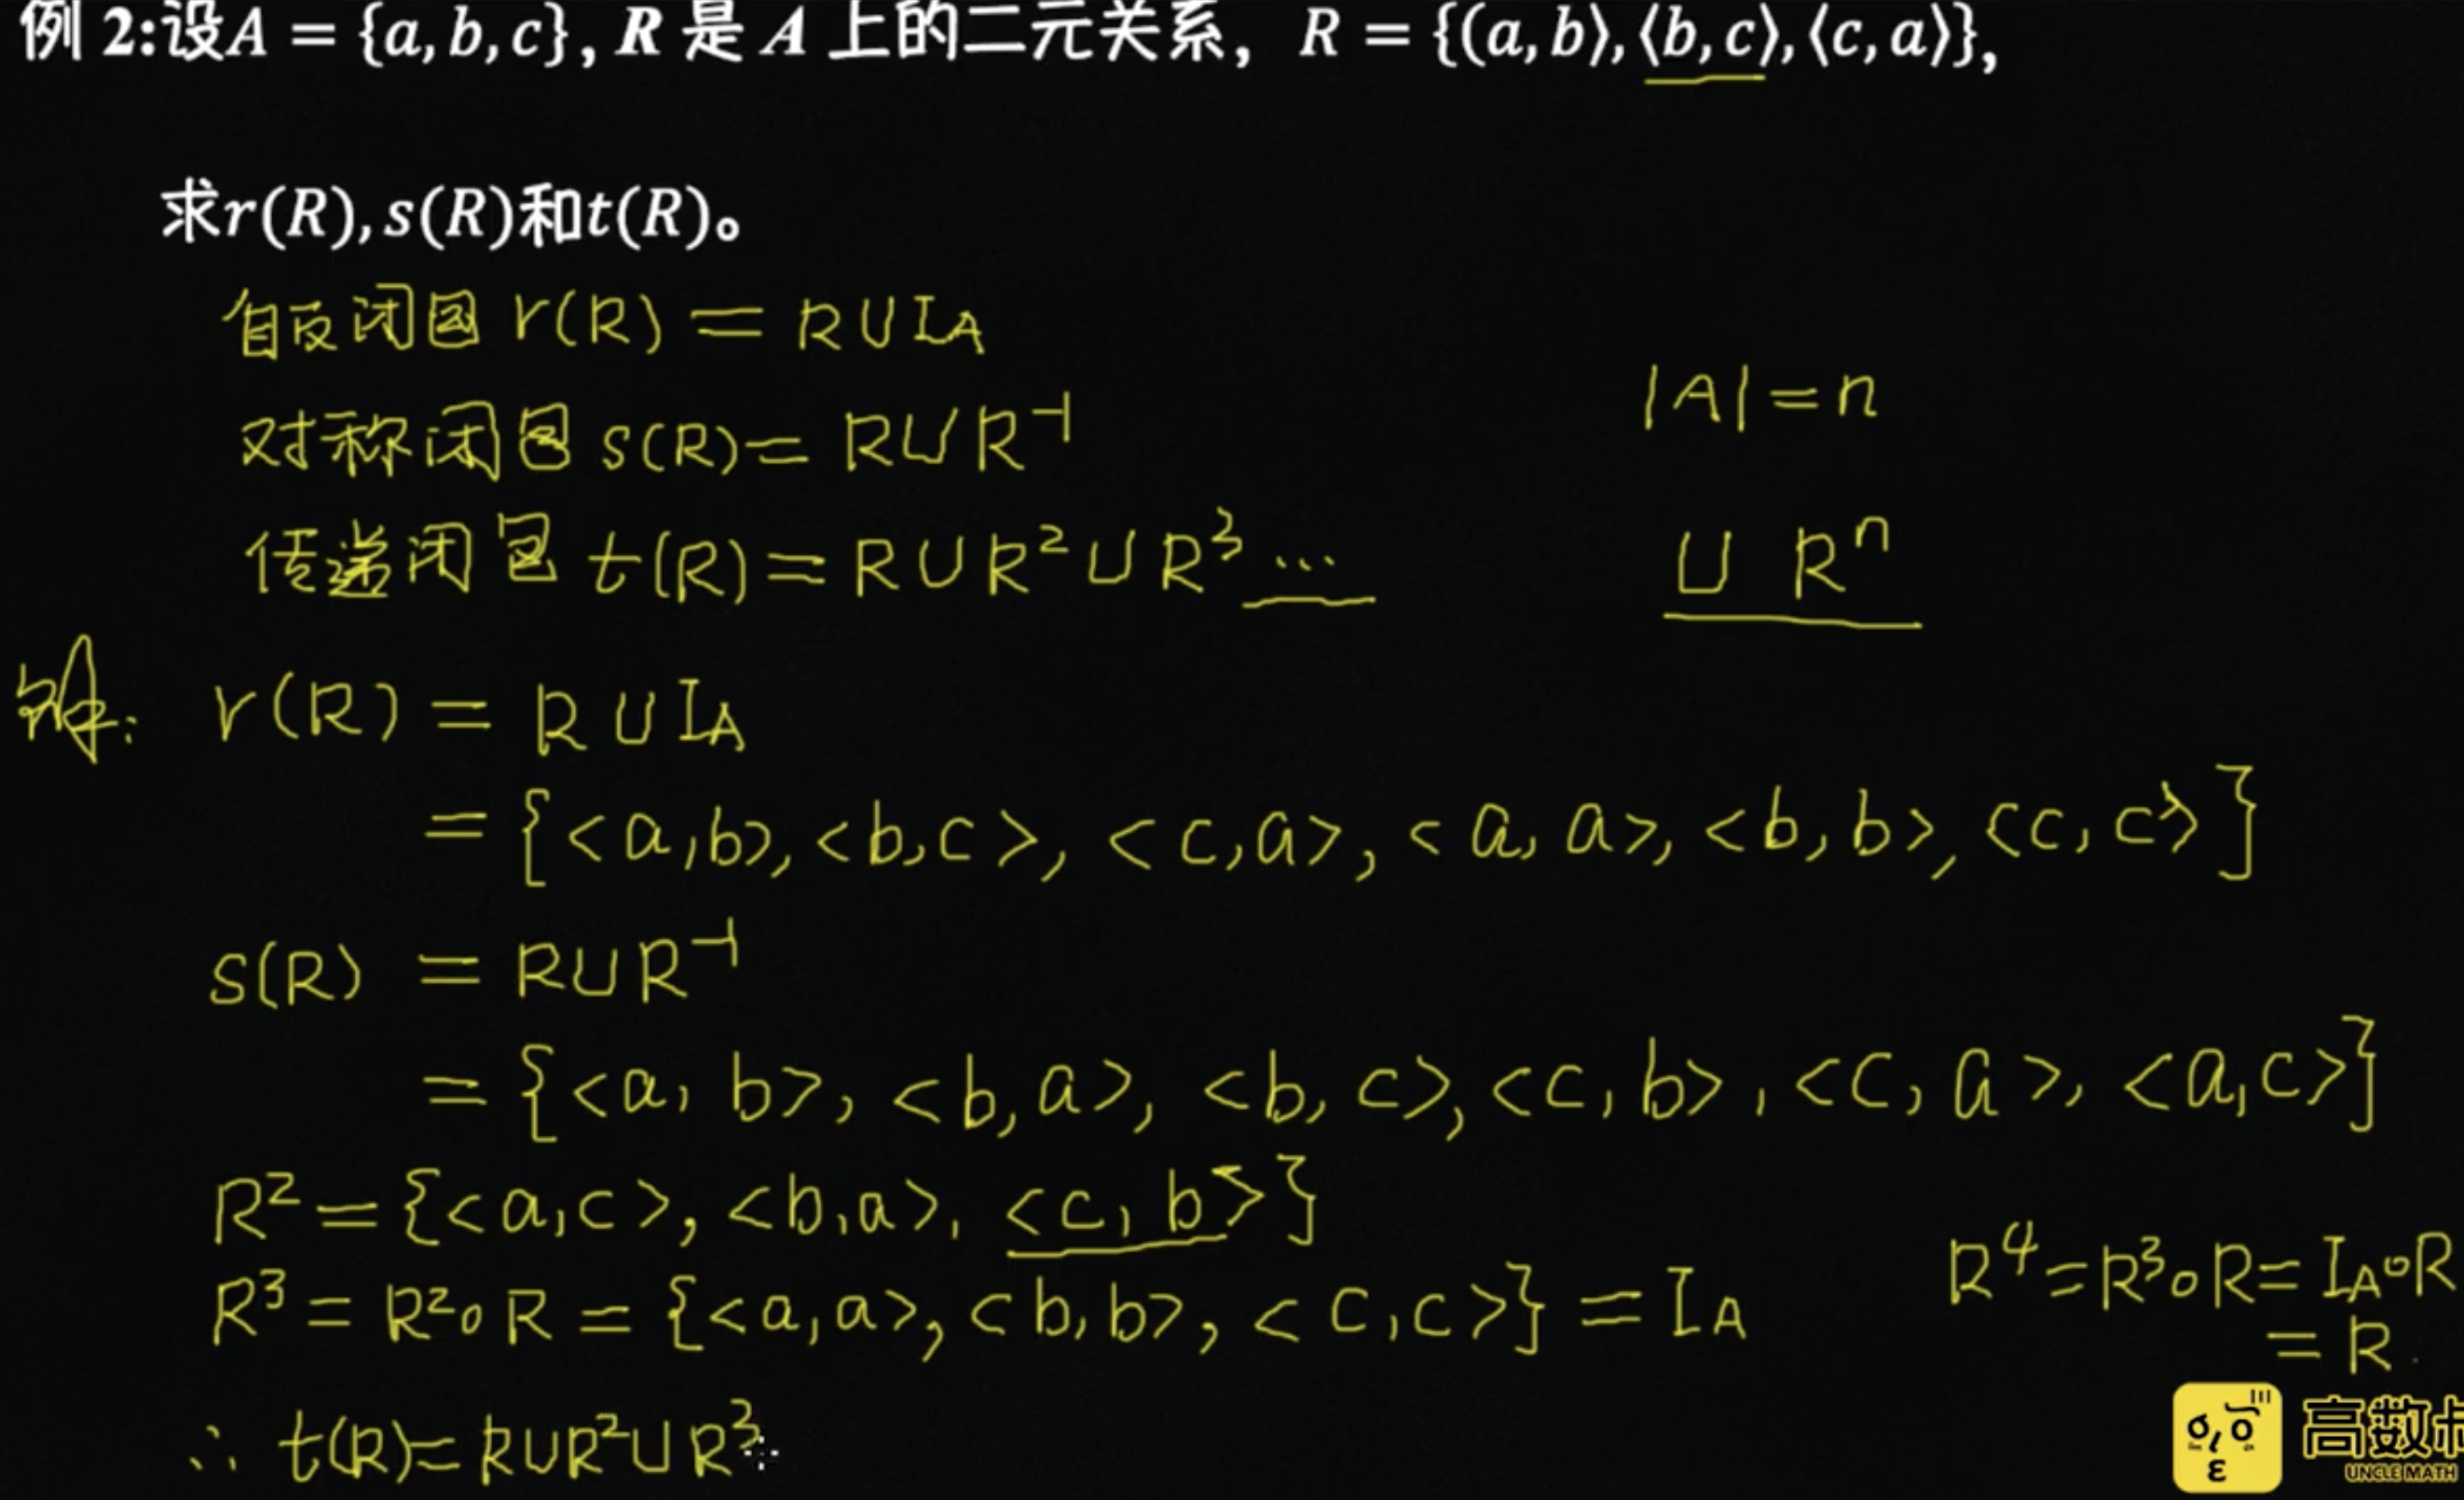 例 2:设A = {a, b, c}, R 是 A 上的二元关系, R = {(a, b⟩, ⟨b, c⟩, ⟨c, a⟩},
求r(R), s(R)和t(R)。
自反闭包 r(R) = R∪I_A
对称闭包 s(R) = R∪R⁻¹
|A| = n
传递闭包 t(R) = R∪R²∪R³ ... ∪ Rⁿ
解: r(R) = R∪I_A
= {<a,b>, <b,c>, <c,a>, <a,a>, <b,b>, <c,c>}
s(R) = R∪R⁻¹
= {<a,b>, <b,a>, <b,c>, <c,b>, <c,a>, <a,c>}
R² = {<a,c>, <b,a>, <c,b>}
R³ = R²∘R = {<a,a>, <b,b>, <c,c>} = I_A
R⁴ = R³∘R = I_A∘R
= R.
∴ t(R) = R∪R²∪R³
高数
UNCLE MATH